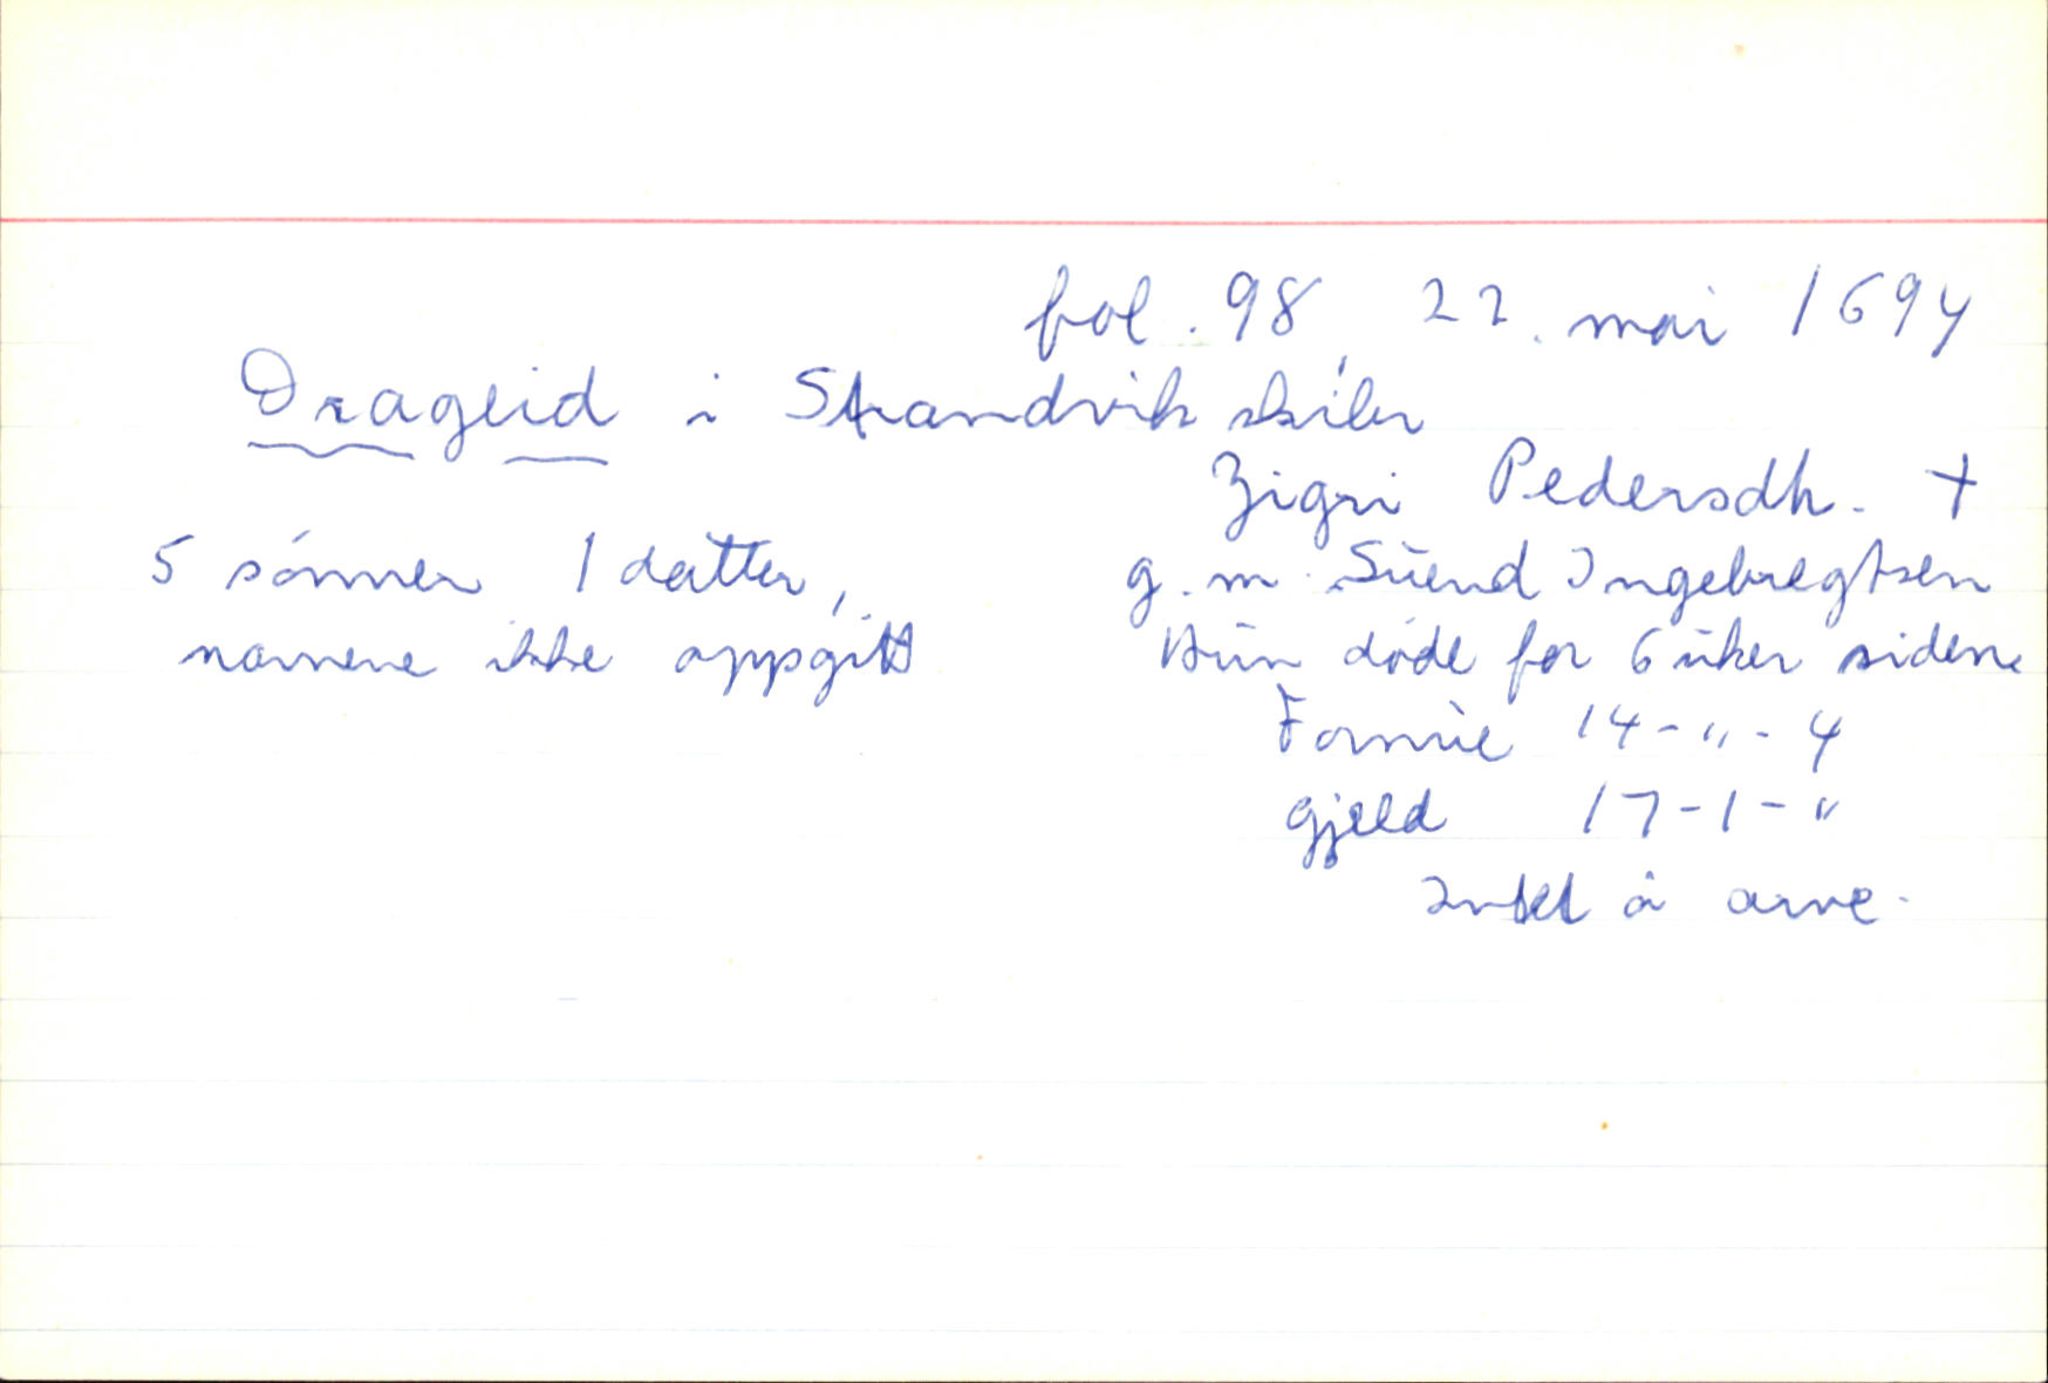 fol. 98, 22. mai 1694
Drageid i Strandvik skiber
Zigri Pedersdtr. +
5 sønner 1 datter,
g. m. Suend Ingebregtsen
navnene ikke oppgitt
Hun døde for 6 uker siden.
Formue 14-"-4
gjeld 17-1-"
Intet å arve.